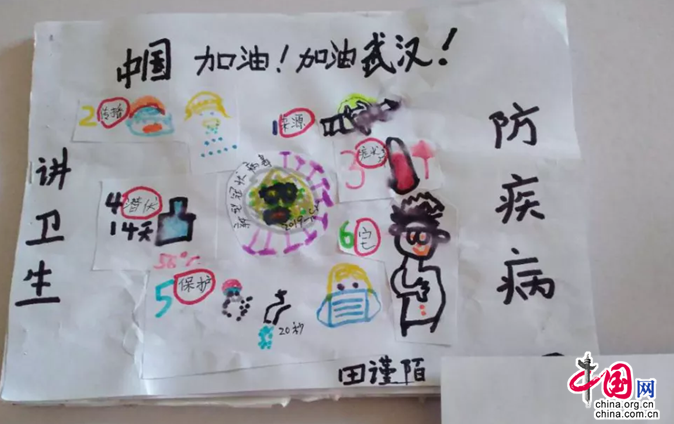 中国 加油！加油武汉！
2 传播
1 病源
3
防疾病
讲卫生
4 潜伏
14天
56°
新型冠状病毒
2019-nCoV
6 宅
5 保护
20秒
田谨陌
中国网
china.org.cn
china.com.cn